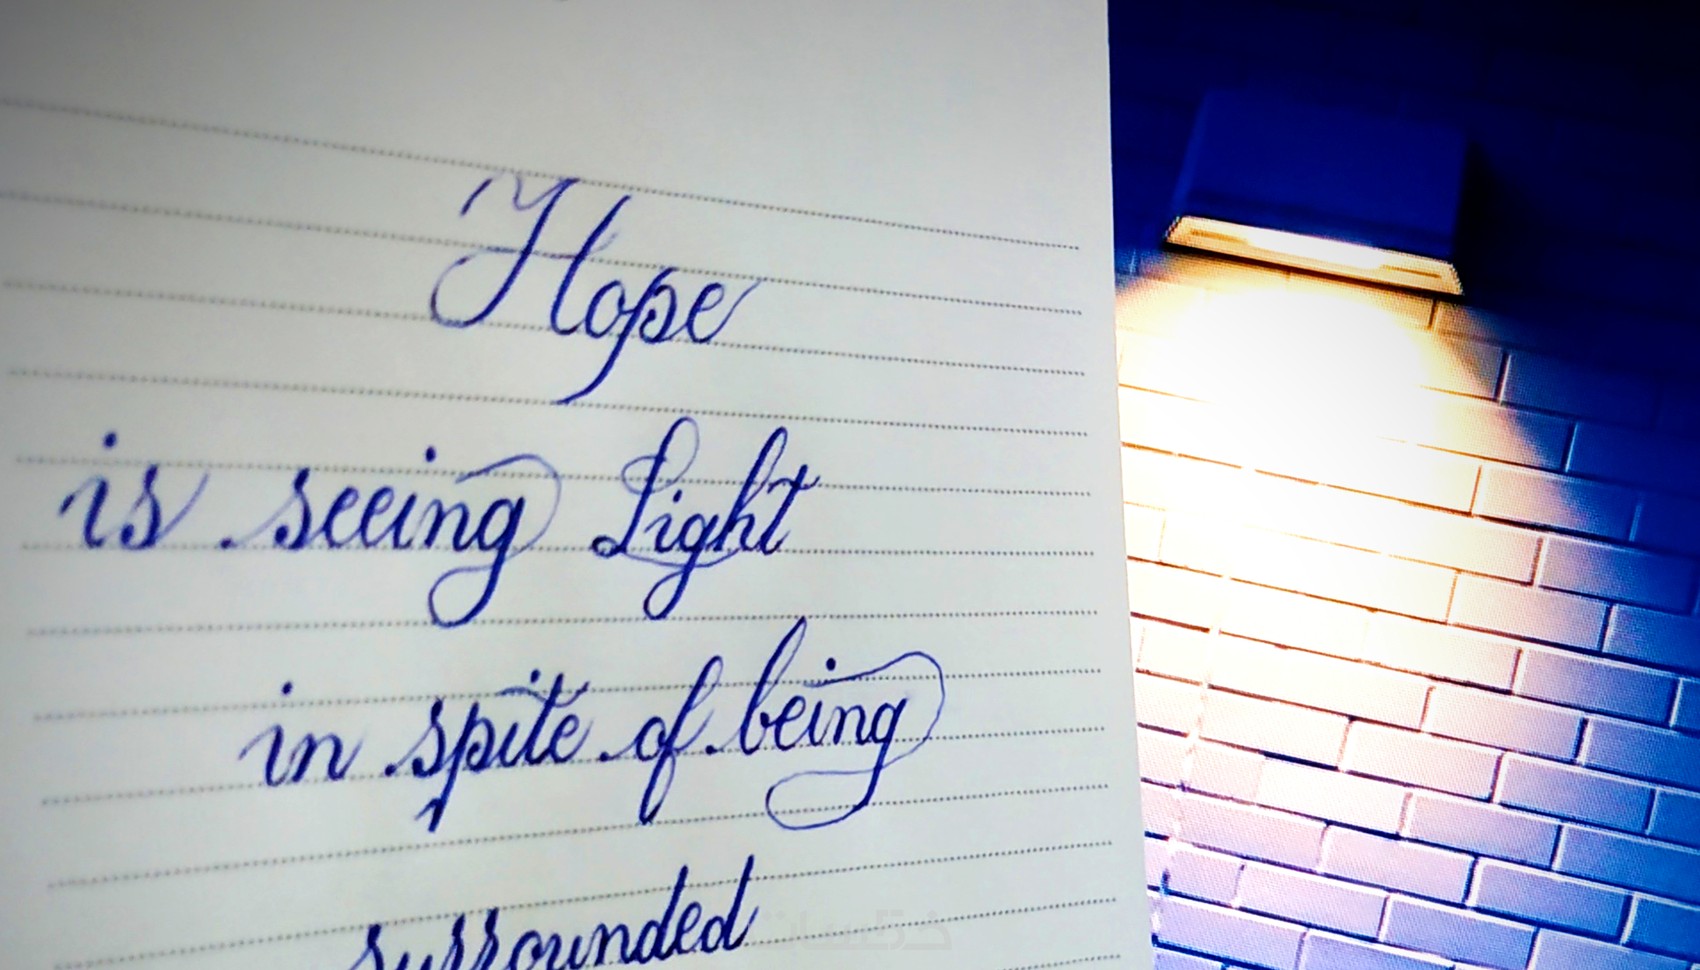 Hope
is seeing Light
in spite of being
surrounded
خمسات